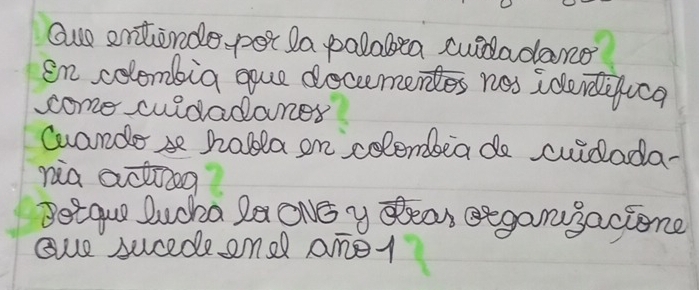 Que entiendo por la palabra cuidadano?
En colombia que documentos nos identifica
como cuidadanos?
Cuando se habla en colombia de cuidada-
nia activa?
Porque lucha la ONG y otras organizacione
Que sucede en el año 1?